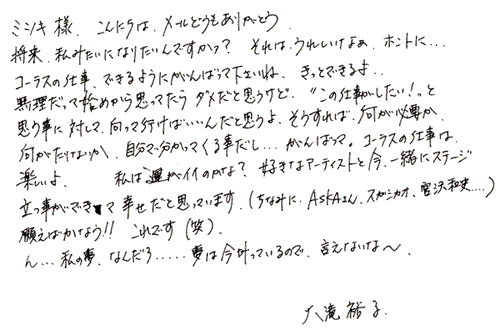 ミシキ様、こんにちは、メールどうもありがとう
将来、私みたいになりたいんですかっ? それは、うれしいけなぁ、ホントに…
コーラスの仕事、できるようにがんばって下さいね、きっとできるよ..
無理だって始めから思ってたら ダメだと思うけど、"この仕事がしたい!"っと
思う事に対して、向って行けばいいんだと思うよ、そうすれば、何が必要か、
何がたりないか、自分で分かってくる事だし… がんばって。コーラスの仕事は、
楽しいよ、 私は運がイイのかな? 好きなアーティストと今、一緒にステージ
立つ事ができて幸せだと思っています、(ちなみに、ASKAさん、スガシカオ、宮沢和史….)
願えばかなう!! これです(笑)、
ん… 私の夢、なんだろ….. 夢は今叶っているので、言えないな〜、
大滝裕子